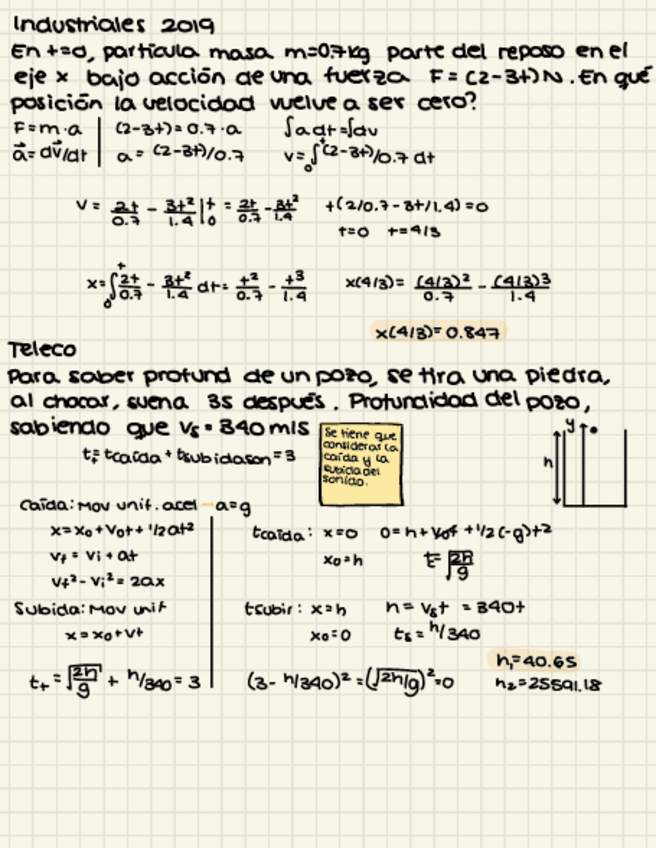 Industriales 2019
En t=0, partícula masa m=0.7kg parte del reposo en el
eje x bajo acción de una fuerza F=(2-3t)N. En qué
posición la velocidad vuelve a ser cero?
F=m·a
a⃗=dv⃗/dt
(2-3t)=0.7·a
a=(2-3t)/0.7
∫adt=∫dv
v=∫₀ᵗ(2-3t)/0.7 dt
v= 2t/0.7 - 3t²/1.4 |₀ᵗ = 2t/0.7 - 3t²/1.4
t(2/0.7-3t/1.4)=0
t=0 t=4/3
x=∫₀ᵗ 2t/0.7 - 3t²/1.4 dt= t²/0.7 - t³/1.4
x(4/3)= (4/3)²/0.7 - (4/3)³/1.4
x(4/3)=0.847
Teleco
Para saber profund de un pozo, se tira una piedra,
al chocar, suena 3s después. Profundidad del pozo,
sabiendo que vs=340m/s
tₜ=tcaída+tsubidason=3
Se tiene que
considerar la
caída y la
subida del
sonido.
y
h
Caída: Mov unif. acel → a=g
x=x₀+v₀t+1/2at²
vf=vi+at
vf²-vi²=2ax
Subida: Mov unif
x=x₀+vt
tₜ=√(2h/g) + h/340=3
tcaída: x=0 0=h+v₀t+1/2(-g)t²
x₀=h t=√(2h/g)
tsubir: x=h h=vst=340t
x₀=0 ts=h/340
(3-h/340)²=(√2h/g)²=0
h₁=40.65
h₂=25591.18